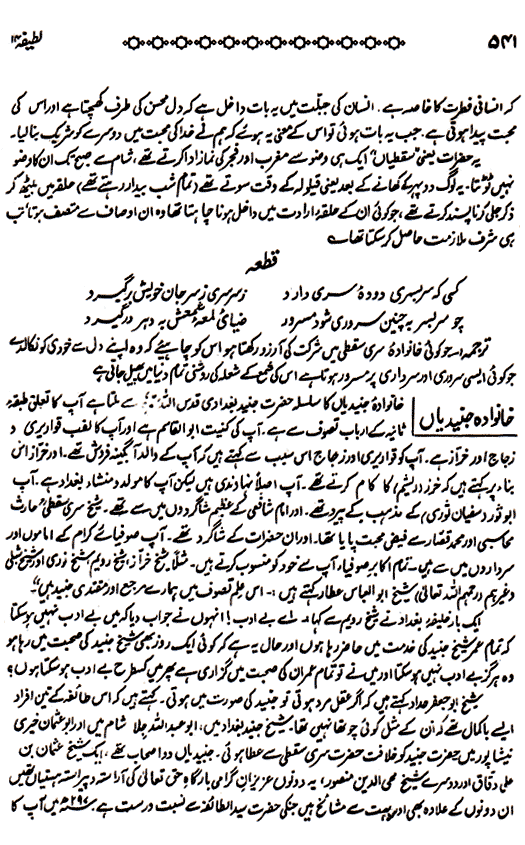 ۵۴۱
لطیفہ ۱۴
کہ انسانی فطرت کا خاصہ ہے۔ انسان کی جبلّت میں یہ بات داخل ہے کہ دل محسن کی طرف کھنچتا ہے اور اس کی
محبت پیدا ہوتی ہے۔ جب یہ بات ہوئی تو اس کے معنی یہ ہوئے کہ ہم نے خدا کی محبت میں دوسرے کو شریک بنا لیا۔
یہ حضرات یعنی "سقطیاں" ایک ہی وضو سے مغرب اور فجر کی نماز ادا کرتے تھے، شام سے صبح تک ان کا وضو
نہیں ٹوٹتا۔ یہ لوگ دوپہر کے کھانے کے بعد یعنی قیلولہ کے وقت سوتے تھے (تمام شب بیدار رہتے تھے) حلقہ میں بیٹھ کر
ذکر جلی کرنا پسند کرتے تھے، جو کوئی ان کے حلقۂ ارادت میں داخل ہونا چاہتا تھا وہ ان اوصاف سے متصف ہوتا تب
ہی شرف ملازمت حاصل کر سکتا تھا۔
قطعہ
کسی کہ سر بسری دودۂ سری دارد زسر سری زسر جان خویش برگیرد
چو سر بسر بہ چنین سروری شود مسرور ضیائی لمعۂ شمعش بہ دہر درگیرد
ترجمہ:۔ جو کوئی خانوادۂ سری سقطی میں شرکت کی آرزو رکھتا ہو اس کو چاہیئے کہ وہ اپنے دل سے خودی کو نکال دے
جو کوئی ایسی سروری اور سرداری پر مسرور ہوتا ہے اس کی شمع کے شعلہ کی روشنی تمام دنیا میں پھیل جاتی ہے
خانوادہ جنیدیاں
خانوادۂ جنیدیاں کا سلسلہ حضرت جنید بغدادی قدس اللہ سے ملتا ہے آپ کا تعلق طبقہ
ثانیہ کے ارباب تصوف سے ہے۔ آپ کی کنیت ابو القاسم ہے اور آپ کا لقب قواریری و
زجاج اور خزاز ہے۔ آپ کو قواریری اور زجاج اس سبب سے کہتے ہیں کہ آپ کے والد آبگینہ فروش تھے۔ اور خزاز اس
بناء پر کہتے ہیں کہ خزز (ریشم) کا کام کرتے تھے۔ آپ اصلاً نہاوندی ہیں لیکن آپ کا مولد و منشاء بغداد ہے۔ آپ
ابو ثور و سفیان ثوری کے مذہب کے پیرو تھے۔ اور امام شافعی کے عظیم شاگردوں میں سے تھے۔ شیخ سری سقطی، حارث
محاسبی اور محمد قصار سے فیض صحبت پایا تھا۔ اور ان حضرات کے شاگرد تھے۔ آپ صوفیائے کرام کے اماموں اور
سرداروں میں سے ہیں۔ تمام اکابر صوفیاء آپ سے خود کو منسوب کرتے ہیں۔ مثلاً شیخ خراز، شیخ رویم، شیخ نوری اور شیخ شبلی
وغیرہم (رحمہم اللہ تعالیٰ) شیخ ابو العباس عطار کہتے ہیں:۔ اس علم تصوف میں ہمارے مرجع اور مقتدی جنید ہیں"
ایک بار خلیفہ بغداد نے شیخ رویم سے کہا۔ اے بے ادب! انہوں نے جواب دیا کہ میں بے ادب نہیں ہو سکتا
کہ تمام عمر شیخ جنید کی خدمت میں حاضر رہا ہوں اور حال یہ ہے کہ کوئی ایک روز بھی شیخ جنید کی صحبت میں رہا ہو
وہ ہرگز بے ادب نہیں ہو سکتا اور میں نے تو تمام عمر ان کی صحبت میں گزاری ہے پھر میں کسطرح بے ادب ہو سکتا ہوں؟
شیخ ابو جعفر حداد کہتے ہیں کہ اگر عقل مرد ہوتی تو جنید کی صورت میں ہوتی۔ کہتے ہیں کہ اس طائفہ کے تین افراد
ایسے باکمال تھے کہ ان کے مثل کوئی چوتھا نہیں تھا۔ شیخ جنید بغداد میں، ابو عبداللہ جلا شام میں اور ابو عثمان حیری
نیشاپور میں حضرت جنید کو خلافت حضرت سری سقطی سے عطا ہوئی۔ جنیدیاں دو اصحاب تھے، ایک شیخ عثمان بن
علی دقاق اور دوسرے شیخ محی الدین منصور؛ یہ دونوں عزیزان گرامی بارگاہ حق تعالیٰ کی آراستہ و پیراستہ ہستیاں تھیں
ان دونوں کے علاوہ بھی اور بہت سے مشائخ ہیں جنکی حضرت سید الطائفہ سے نسبت درست ہے ۲۹۷ھ میں آپ کا